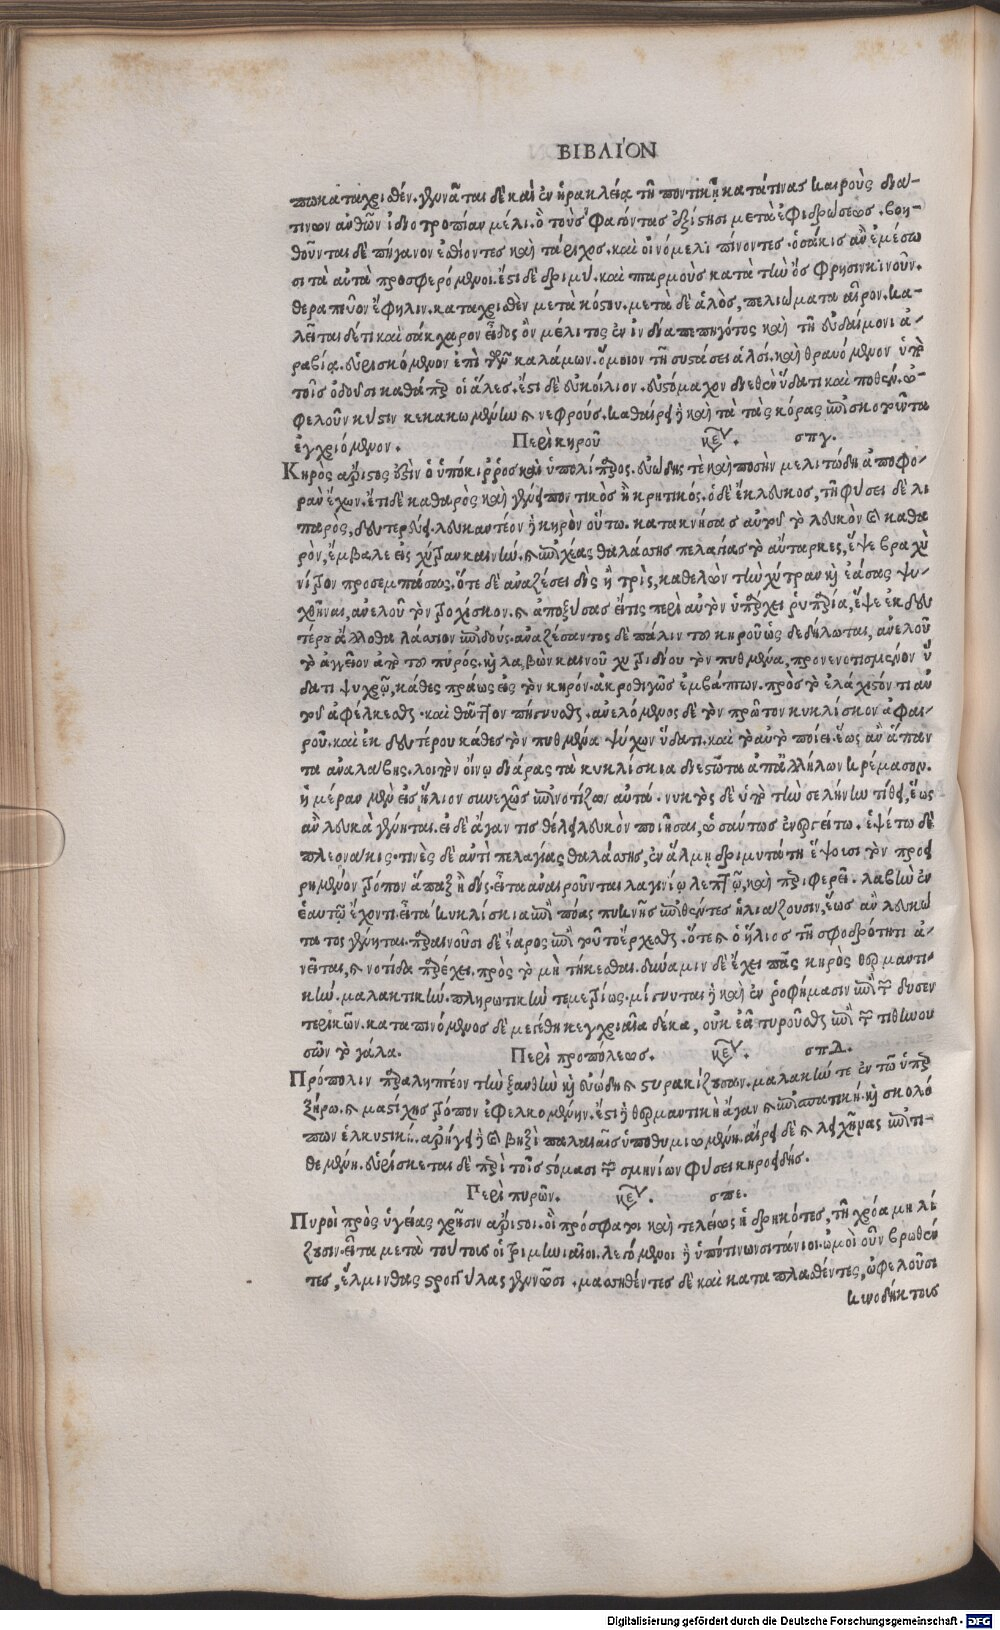 ΒΙΒΛΙΌΝ
πω καταχρισθέν. γεννᾶται δὲ καὶ ἐν ἡρακλείᾳ τῇ ποντικῇ κατά τινας καιροὺς διά-
τινων ἀνθῶν ἰδιοτροπίαν μέλι. ὃ τοὺς φαγόντας ἐξίστησι μετὰ ἐφιδρώσεως. βοη-
θοῦνται δὲ πήγανον ἐσθίοντες καὶ τάριχος. καὶ οἰνόμελι πίνοντες. ὁσάκις ἂν ἐμέσω
σι τὰ αὐτὰ προσφερόμενοι. ἔστι δὲ δριμύ. καὶ πταρμοὺς κατὰ τὴν ὄσφρησιν κινοῦν.
θεραπεῦον ἔφηλιν. καταχρισθὲν μετὰ κόστου. μετὰ δὲ ἁλὸς, πελιώματα αἶρον. κα-
λεῖται δέ τι καὶ σάκχαρον εἶδος ὂν μέλιτος ἐν ἰνδίᾳ πεπηγότος καὶ τῇ εὐδαίμονι ἀ-
ραβίᾳ. εὑρισκόμενον ἐπὶ τῶν καλάμων. ὅμοιον τῇ συστάσει ἁλσί. καὶ θραυόμενον ὑπὸ
τοῖς ὀδοῦσι καθάπερ οἱ ἅλες. ἔστι δὲ εὐκοίλιον. εὐστόμαχον διεθὲν ὕδατι καὶ ποθέν. ὠ-
φελοῦν κύστιν κεκακωμένην καὶ νεφρούς. καθαίρει δὲ καὶ τὰ τὰς κόρας ἐπισκοτοῦντα
ἐγχριόμενον. Περὶ κηροῦ κεφ. σπγ.
Κηρὸς ἄριστος ἐστὶν ὁ ὑπόκιρρος καὶ ὑπολίπαρος. εὐώδης τὲ καὶ ποσὴν μελιτώδη ἀποφο-
ρὰν ἔχων. ἔτι δὲ καθαρὸς καὶ γένει ποντικὸς ἢ κρητικός. ὁ δὲ ἔκλευκος, τῇ φύσει δὲ λι
παρός, δευτερεύει. λευκαντέον δὲ κηρὸν οὕτω. κατακνήσας αὐτοῦ τὸ λευκὸν καὶ καθα
ρόν, ἔμβαλε εἰς χύτραν καινήν. καὶ ἐπιχέας θαλάσσης πελαγίας τὸ αὔταρκες, ἕψε βραχὺ
νίτρον προσεμπάσας. ὅτε δὲ ἀναζέσει δὶς ἢ τρίς, καθελὼν τὴν χύτραν καὶ ἐάσας ψυ-
χθῆναι, ἀνελοῦ τὸν τροχίσκον. καὶ ἀποξύσας εἴτις περὶ αὐτὸν ὑπάρχει ῥυπαρία, ἕψε ἐκ δευ
τέρου ἄλλο θαλάσσιον ἐπιδούς. ἀναζέσαντος δὲ πάλιν τοῦ κηροῦ ὡς δεδήλωται, ἀνελοῦ
τὸ ἀγγεῖον ἀπὸ τοῦ πυρός. καὶ λαβὼν καινοῦ χυτριδίου τὸν πυθμένα, προνενοτισμένον ὕ
δατι ψυχρῷ, κάθες πράως εἰς τὸν κηρόν. ἀκροθιγῶς ἐμβάπτων. πρὸς τὸ ἐλάχιστόν τι αὐ
τοῦ ἀφέλκεσθαι. καὶ θᾶττον πήγνυσθαι. ἀνελόμενος δὲ τὸν πρῶτον κυκλίσκον ἀφαι-
ροῦ. καὶ ἐκ δευτέρου κάθες τὸν πυθμένα ψύχων ὕδατι. καὶ τὸ αὐτὸ ποίει. ἕως ἂν ἅπαν
τα ἀναλάβῃς. λοιπὸν λίνῳ διάρας τὰ κυκλίσκια διεστῶτα ἀπ' ἀλλήλων κρέμασον.
ἡμέραν μὲν εἰς ἥλιον συνεχῶς ἐπινοτίζων αὐτά. νυκτὸς δὲ ὑπὸ τὴν σελήνην τίθει, ἕως
ἂν λευκὰ γένηται. εἰ δὲ ἄγαν τις θέλει λευκὸν ποιῆσαι, ὡσαύτως ἐνεργείτω. ἑψέτω δὲ
πλεονάκις. τινὲς δὲ ἀντὶ πελαγίας θαλάσσης, ἐν ἅλμῃ δριμυτάτῃ ἕψουσι τὸν προει
ρημένον τρόπον ἅπαξ ἢ δίς. εἶτα ἀναιροῦνται λαγνίῳ λεπτῷ, καὶ περιφερεῖ. λαβὴν ἐν
ἑαυτῷ ἔχοντι. εἶτα κυκλίσκια ἐπὶ πόας πυκνῆς ἐπιθέντες ἡλιάζουσιν, ἕως ἂν λευκό
τατος γένηται. παραινοῦσι δὲ ἔαρος ἐπὶ τοῦτο ἔρχεσθαι. ὅτε καὶ ὁ ἥλιος τῇ σφοδρότητι ἀ-
νεῖται, καὶ νοτίδα παρέχει. πρὸς τὸ μὴ τήκεσθαι. δύναμιν δὲ ἔχει πᾶς κηρὸς θερμαντι-
κήν. μαλακτικήν. πληρωτικήν τε μετρίως. μίσγυται δὲ καὶ ἐν ῥοφήμασιν ἐπὶ τῶν δυσεν
τερικῶν. καταπινόμενος δὲ μεγέθη κεγχριαῖα δέκα, οὐκ ἐᾷ τυροῦσθαι ἐπὶ τῶν τιθηνου
σῶν τὸ γάλα. Περὶ προπόλεως. κεφ. σπδ.
Πρόπολιν παραληπτέον τὴν ξανθὴν καὶ εὐώδη καὶ στυρακίζουσαν. μαλακήν τε ἐν τῷ ὑπερ
ξήρῳ. καὶ μαστίχης τρόπον ἐφελκομένην. ἔστι δὲ θερμαντικὴ ἄγαν καὶ ἐπισπαστική. καὶ σκολό
πων ἑλκυστική. ἀρήγει δὲ καὶ βηξὶ παλαιαῖς ὑποθυμιωμένη. αἴρει δὲ καὶ λειχῆνας ἐπιτι-
θεμένη. εὑρίσκεται δὲ περὶ τοῖς στόμασι τῶν σμηνίων φύσει κηροειδής.
Περὶ πυρῶν. κεφ. σπε.
Πυροὶ πρὸς ὑγείας χρῆσιν ἄριστοι. οἱ πρόσφατοι καὶ τελείως ἡδρηκότες, τῇ χρόα μηλί
ζουσιν. εἶτα μετὰ τούτοις οἱ τριμηνιαῖοι. λεγόμενοι δὲ ὑπότινων σιτάνιοι. ὠμοὶ οὖν βρωθέν
τες, ἕλμινθας στρογγύλας γεννῶσι. μασηθέντες δὲ καὶ καταπλασθέντες, ὠφελοῦσι
κυνοδήκτοις
Digitalisierung gefördert durch die Deutsche Forschungsgemeinschaft - DFG